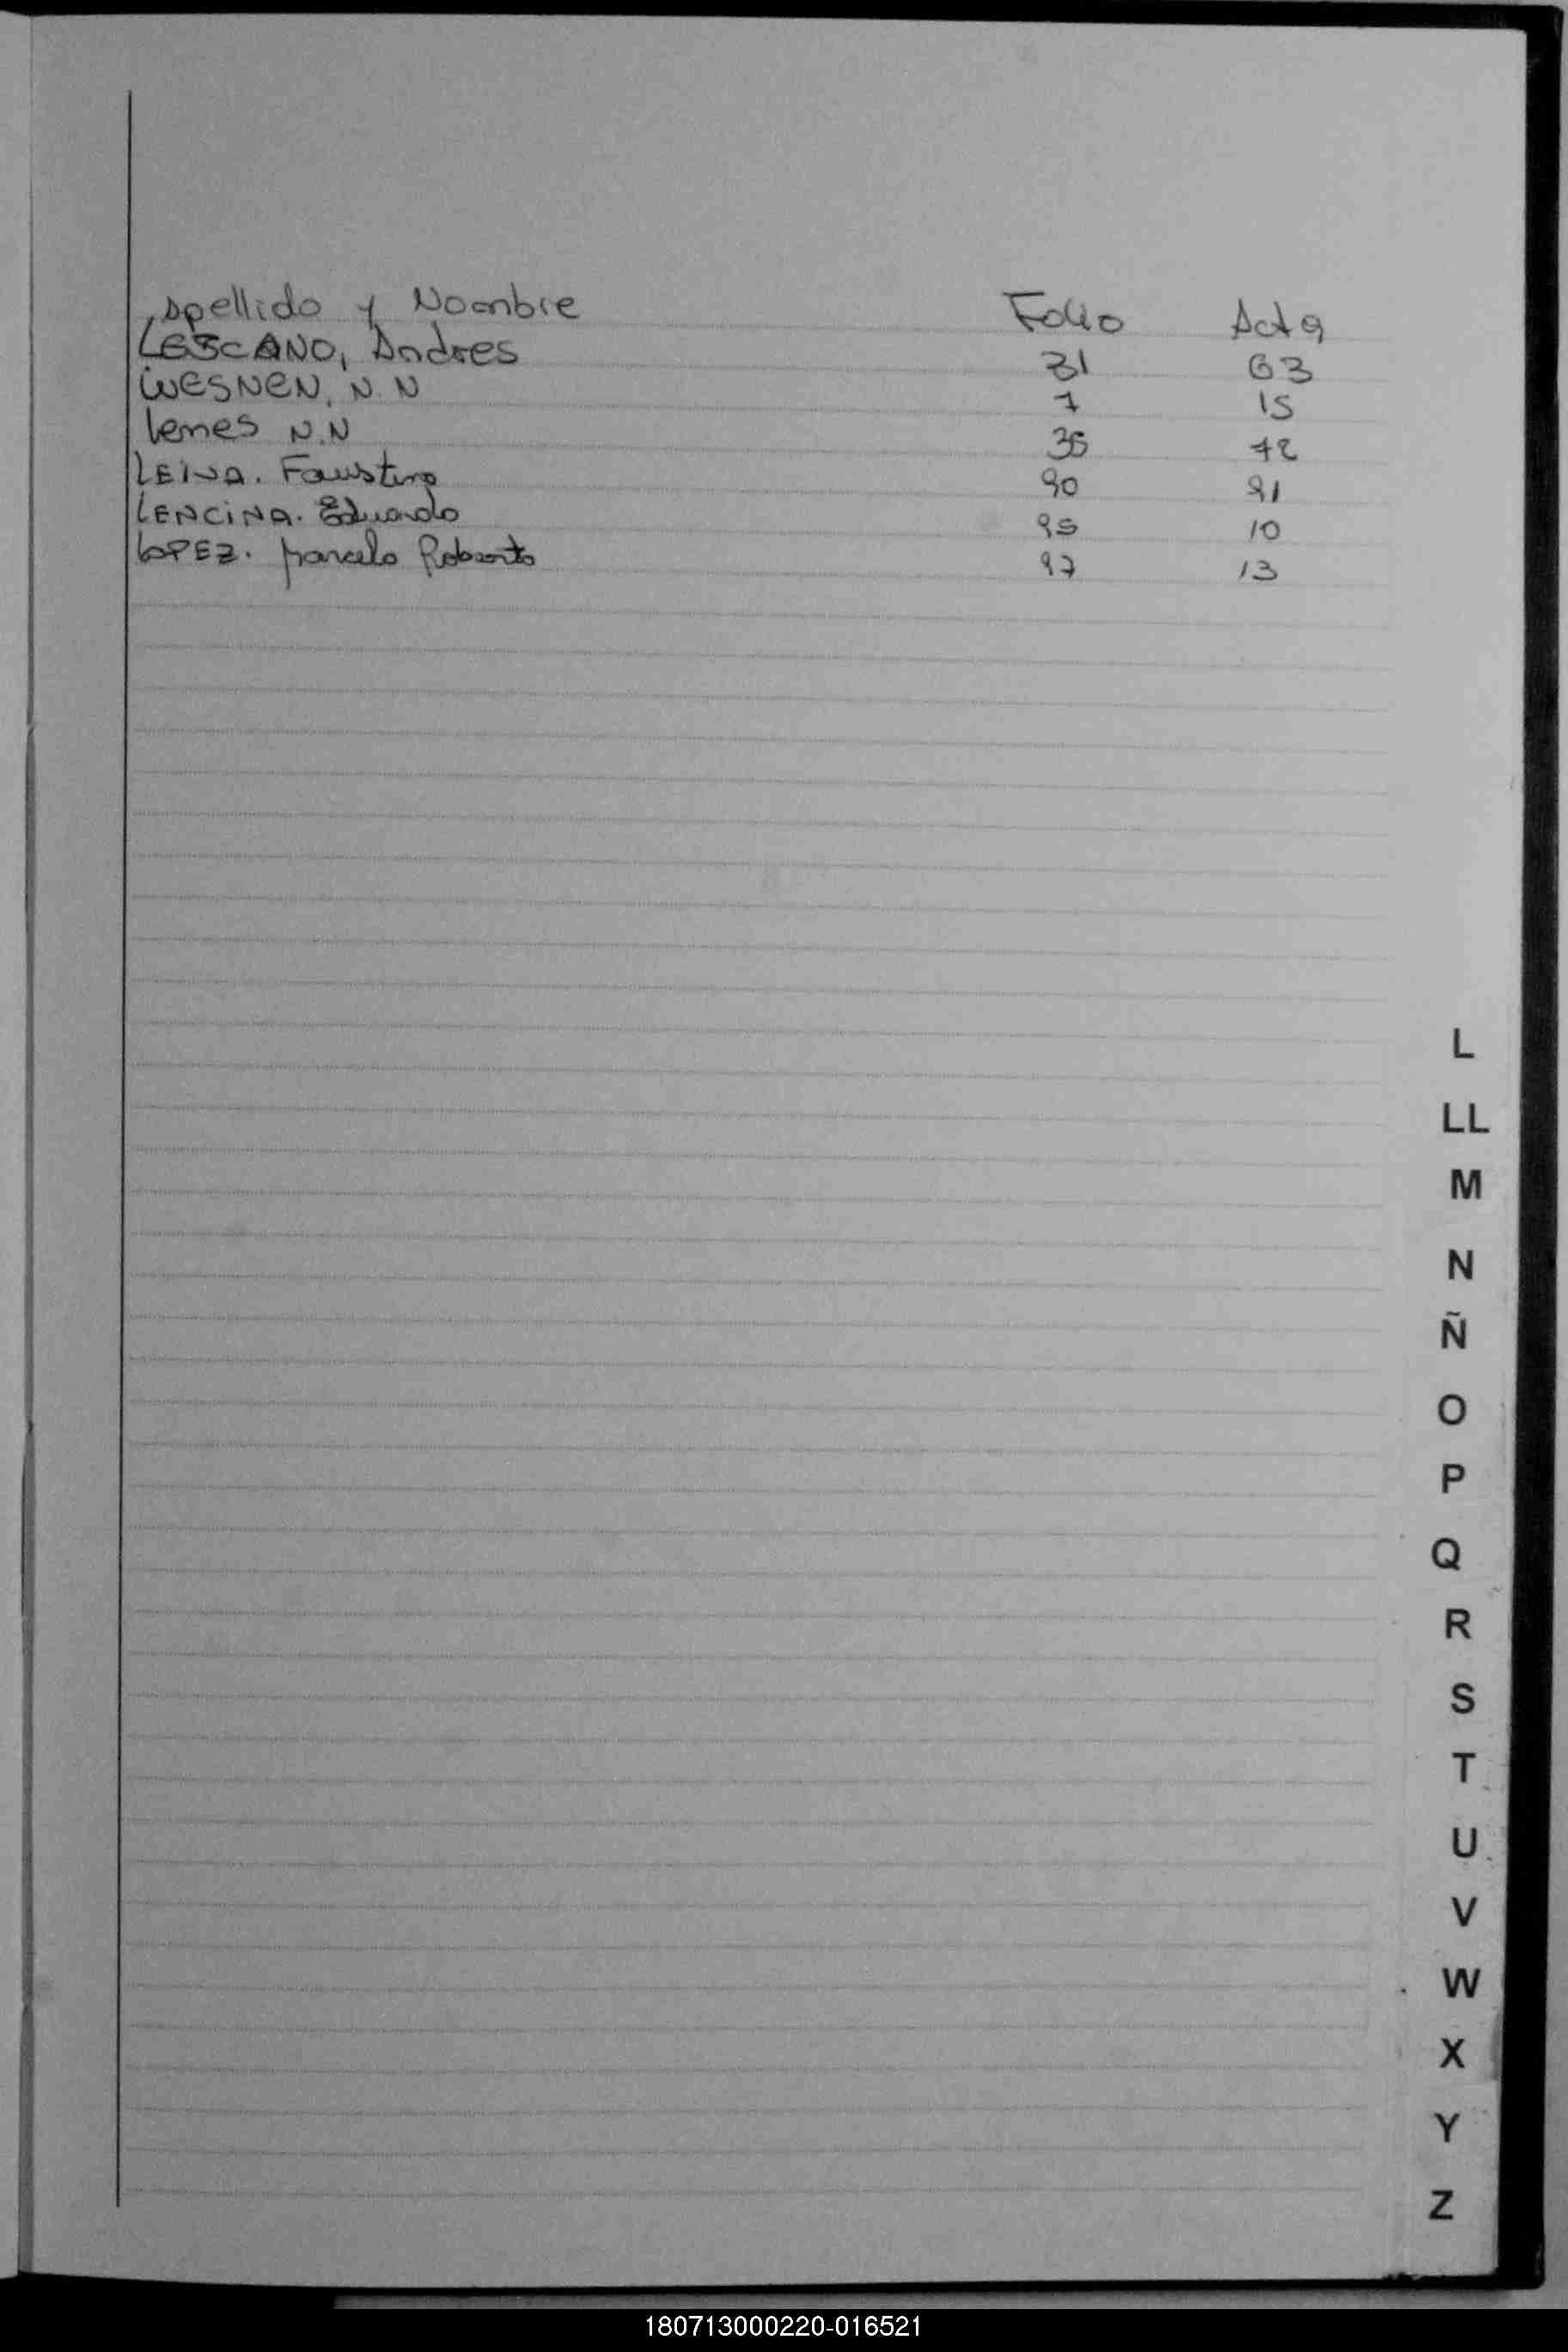 Apellido y Nombre Folio Acta
LESCANO, Andres 31 63
WESNEN, N.N 7 15
Lemes N.N 36 72
LEIVA. Faustino 90 91
LENCINA. Eduardo 95 10
LOPEZ. Marcelo Roberto 97 13
L
LL
M
N
Ñ
O
P
Q
R
S
T
U
V
W
X
Y
Z
180713000220-016521